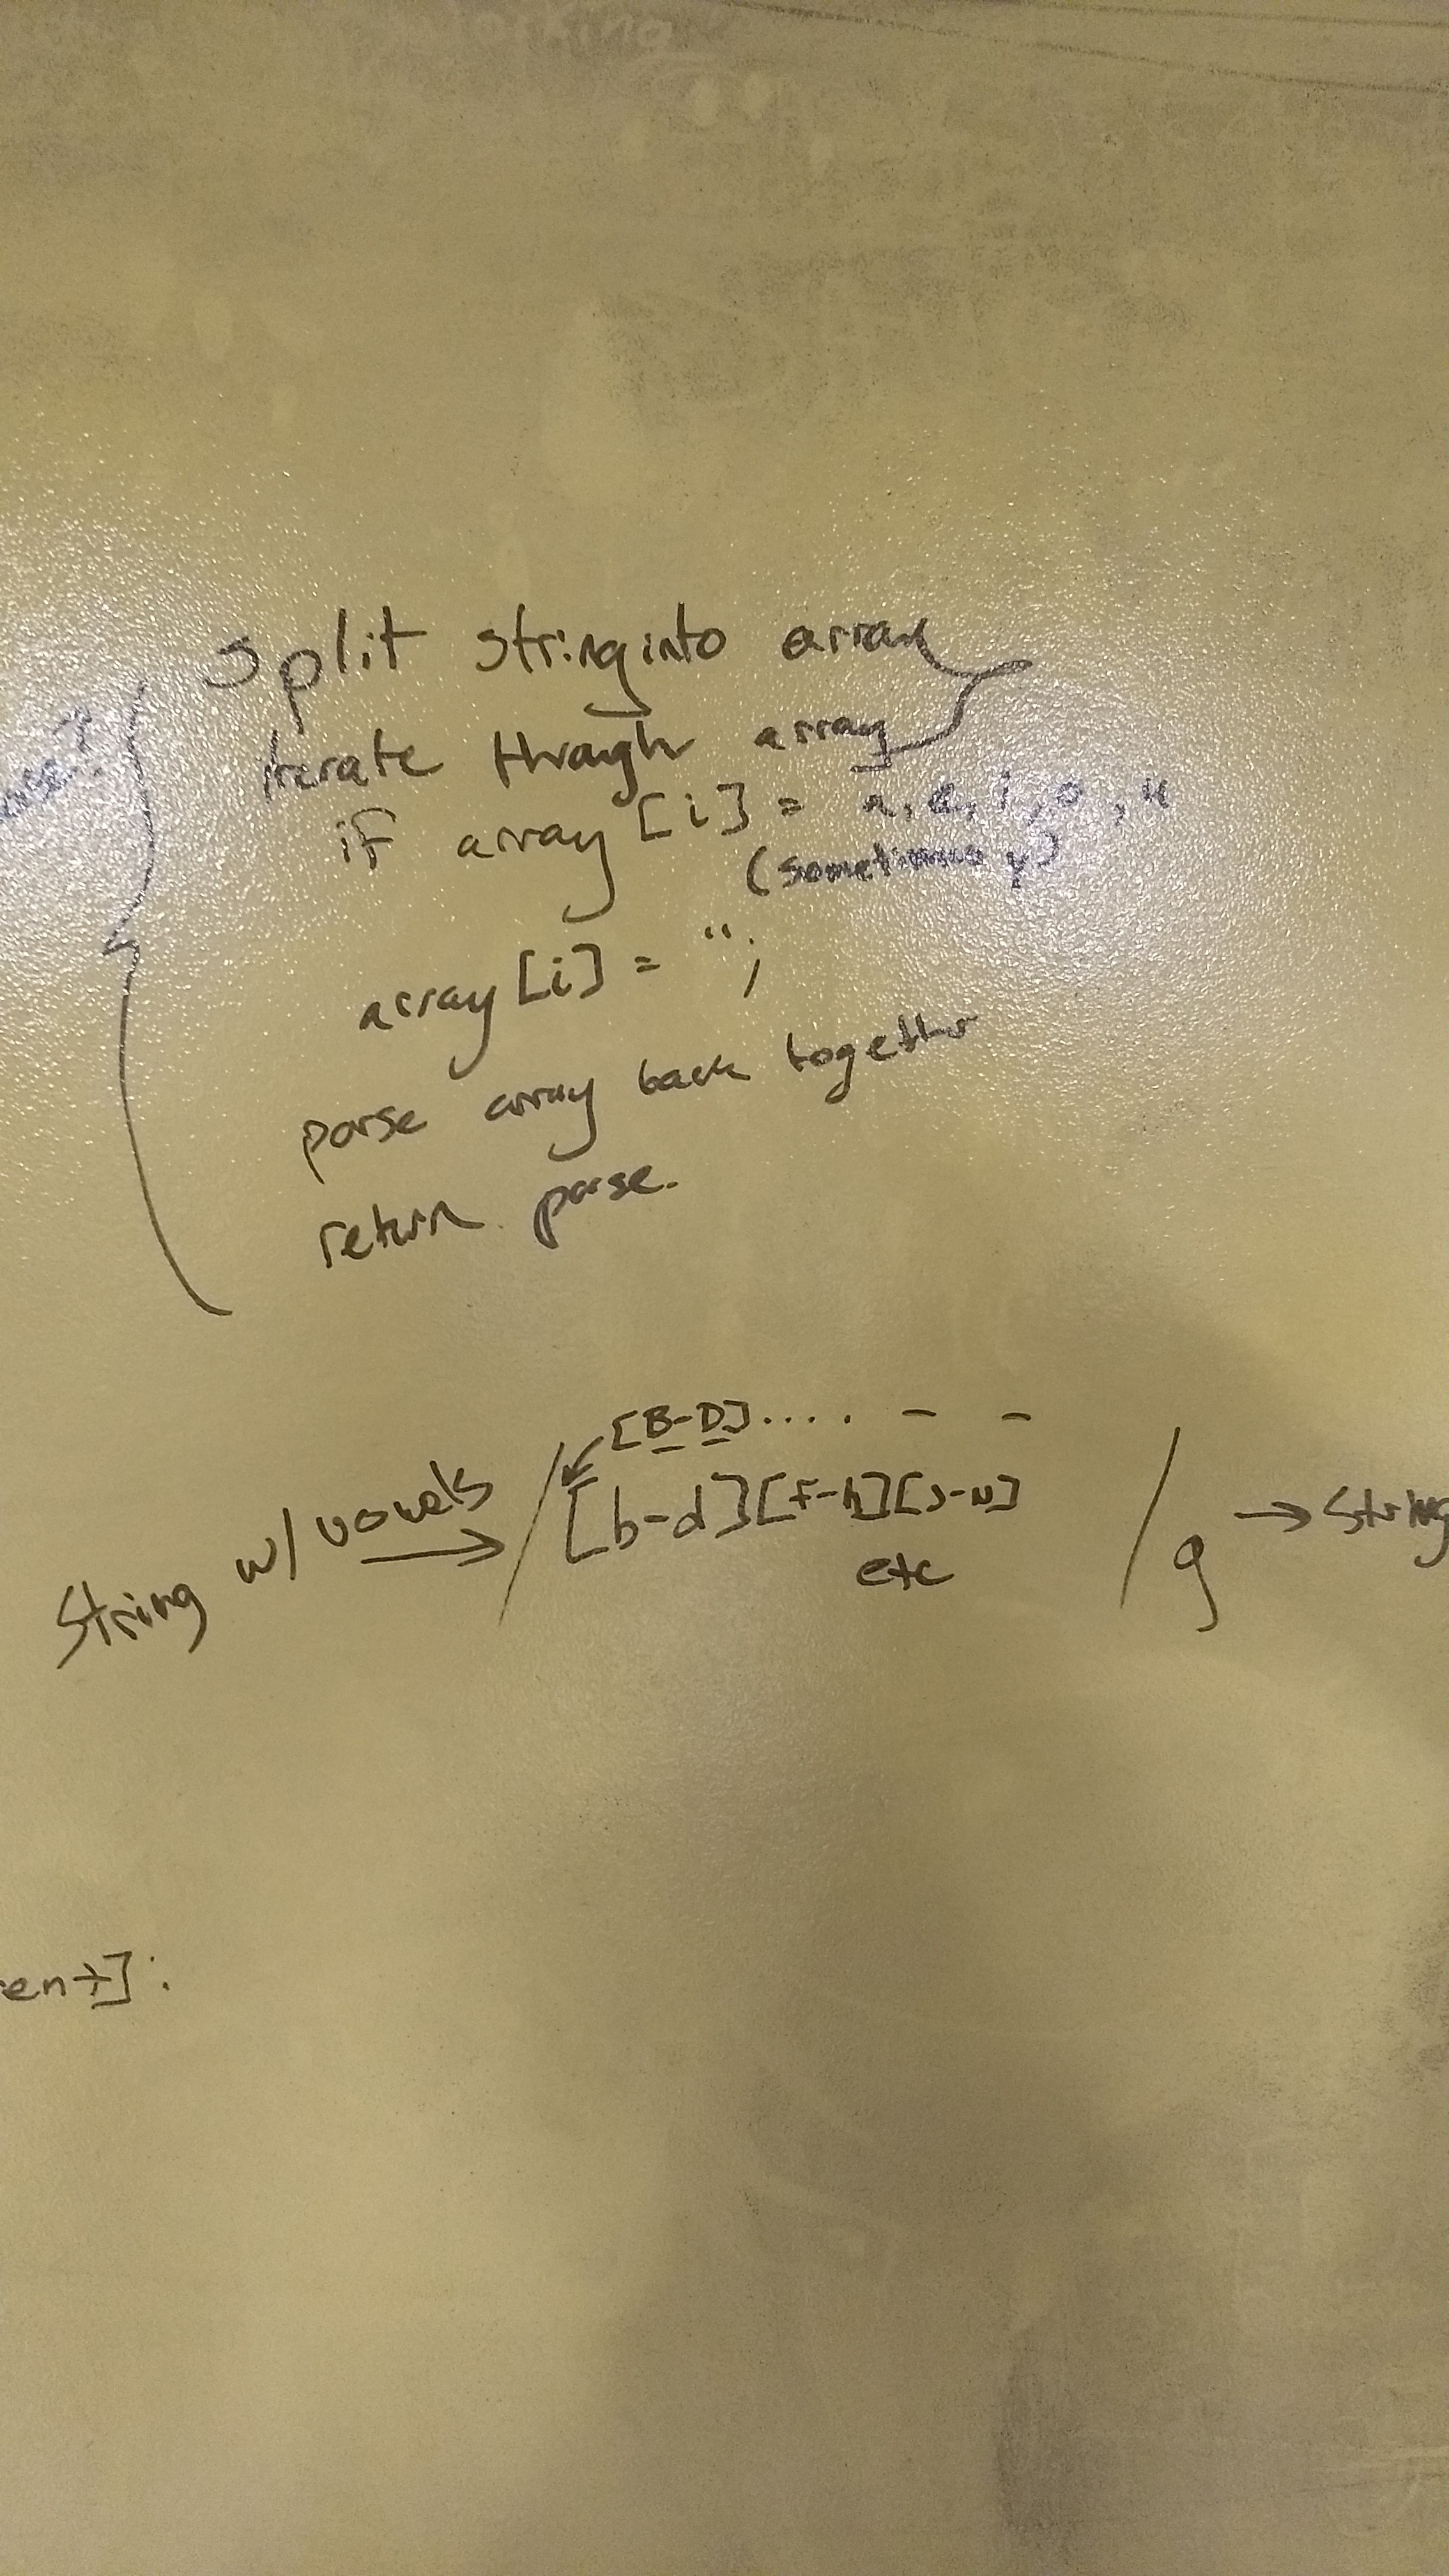 working
split string into array
iterate through array
if array [i] = a, e, i, o, u
(sometimes y)
array [i] = ";
parse array back together
return parse.
[B-D].... - -
String w/ vowels → / [b-d][f-h][j-n] / g → string
etc
en+]: